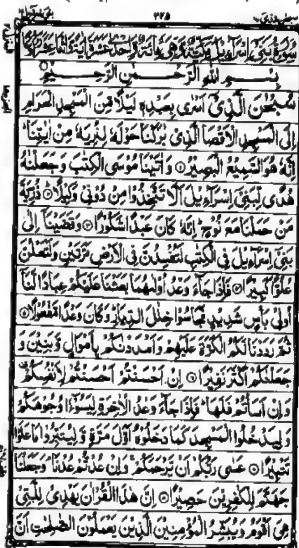 ٣٢٥
سورة بني اسراءيل مكية وهي مائة واحدى عشرة اية واثنا عشر ركوعا
بسم الله الرحمن الرحيم
سبحن الذي اسرى بعبده ليلا من المسجد الحرام
الى المسجد الاقصا الذي بركنا حوله لنريه من ايتنا
انه هو السميع البصير ۝ واتينا موسى الكتب وجعلنه
هدى لبني اسراءيل الا تتخذوا من دوني وكيلا ۝ ذرية
من حملنا مع نوح انه كان عبدا شكورا ۝ وقضينا الى
بني اسراءيل في الكتب لتفسدن في الارض مرتين ولتعلن
علوا كبيرا ۝ فاذا جاء وعد اولىهما بعثنا عليكم عبادا لنا
اولي باس شديد فجاسوا خلل الديار وكان وعدا مفعولا ۝
ثم رددنا لكم الكرة عليهم وامددنكم باموال وبنين و
جعلنكم اكثر نفيرا ۝ ان احسنتم احسنتم لانفسكم
وان اساتم فلها فاذا جاء وعد الاخرة ليسوءا وجوهكم
وليدخلوا المسجد كما دخلوه اول مرة وليتبروا ما علوا
تتبيرا ۝ عسى ربكم ان يرحمكم وان عدتم عدنا وجعلنا
جهنم للكفرين حصيرا ۝ ان هذا القران يهدي للتي
هي اقوم ويبشر المؤمنين الذين يعملون الصلحت ان